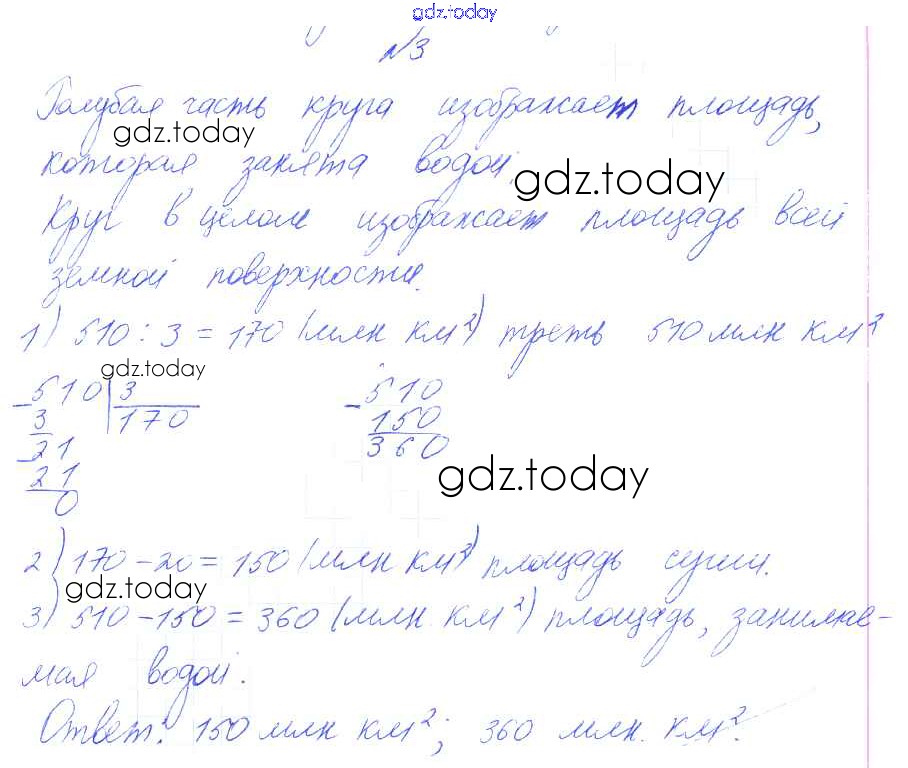 gdz.today
№3
Голубая часть круга изображает площадь,
gdz.today
которая занята водой.
gdz.today
Круг в целом изображает площадь всей
земной поверхности.
1) 510 : 3 = 170 (млн км²) треть 510 млн км²
gdz.today
510 | 3
3 170
21
21
0
- 510
150
360
gdz.today
2) 170 - 20 = 150 (млн км²) площадь суши.
gdz.today
3) 510 - 150 = 360 (млн км²) площадь, занимае-
мая водой.
Ответ: 150 млн км²; 360 млн км².